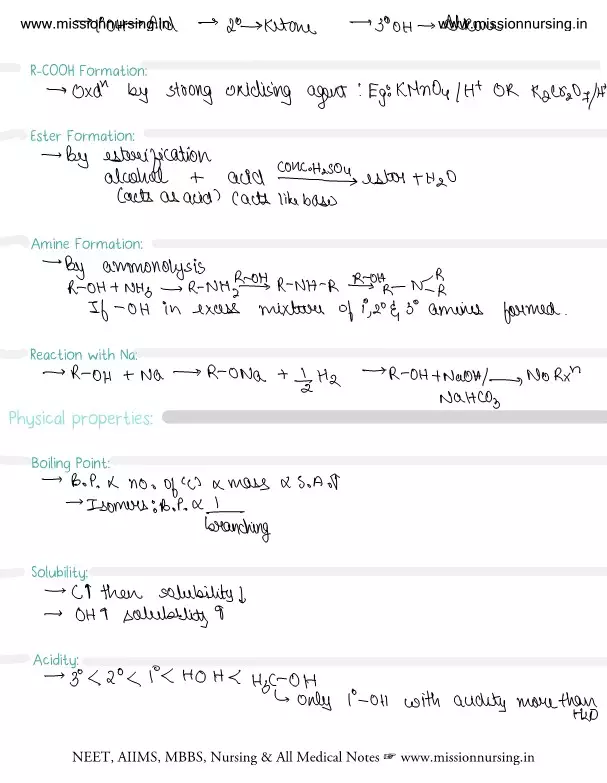 www.missionnursing.in → 2°→Ketone → 3°OH → www.missionnursing.in
R-COOH Formation:
→ Oxdⁿ by strong oxidising agent : Eg: KMnO4/H+ OR K2Cr2O7/H+
Ester Formation:
→ By esterification
alcohol + acid conc.H2SO4→ ester + H2O
(acts as acid) (acts like base)
Amine Formation:
→ By ammonolysis
R-OH + NH3 → R-NH2 R-OH→ R-NH-R R-OH→ R-N<R R
If -OH in excess mixture of 1°, 2° & 3° amines formed.
Reaction with Na:
→ R-OH + Na → R-ONa + 1/2 H2 → R-OH + NaOH/ → No Rxⁿ
NaHCO3
Physical properties:
Boiling Point:
→ B.P. ∝ no. of 'C' ∝ mass ∝ S.A.↑
→ Isomers: B.P. ∝ 1
branching
Solubility:
→ C↑ then solubility ↓
→ OH↑ solubility ↑
Acidity:
→ 3° < 2° < 1° < HOH < H3C-OH
↳ only 1°-OH with acidity more than
H2O
NEET, AIIMS, MBBS, Nursing & All Medical Notes ☞ www.missionnursing.in